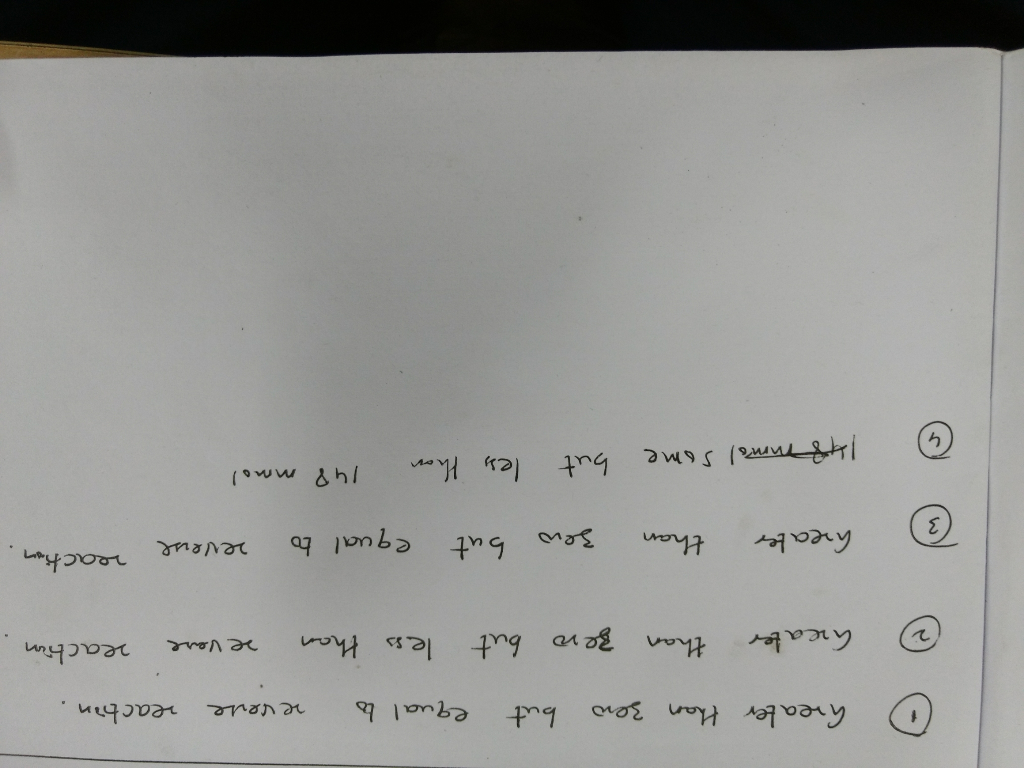 ① Greater than zero but equal to reverse reaction.
② Greater than zero but less than reverse reaction.
③ Greater than zero but equal to reverse reaction.
④ 148 mmol some but less than 148 mmol